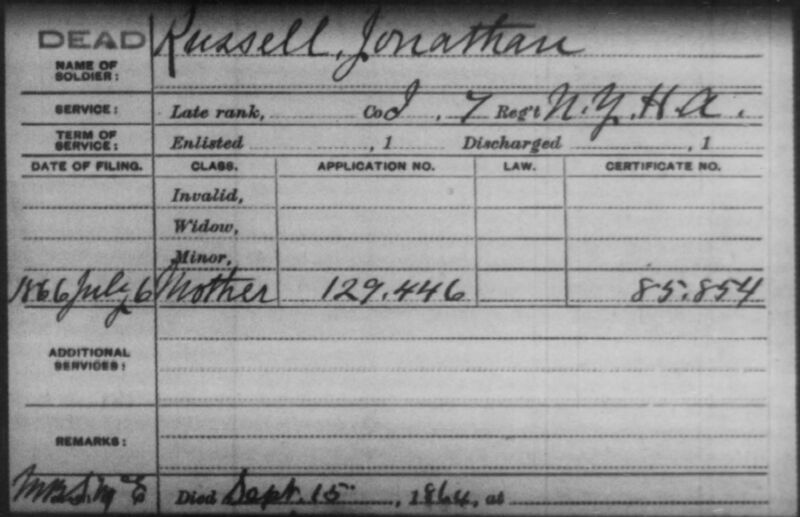 DEAD Russell, Jonathan
NAME OF
SOLDIER:
SERVICE: Late rank, Co I, 7 Reg't N.Y. H.A.
TERM OF
SERVICE: Enlisted , 1 Discharged , 1
DATE OF FILING. CLASS. APPLICATION NO. LAW. CERTIFICATE NO.
Invalid,
Widow,
Minor,
1866 July 6 Mother 129.446 85.854
ADDITIONAL
SERVICES:
REMARKS:
Died Sept. 15 , 1864, at